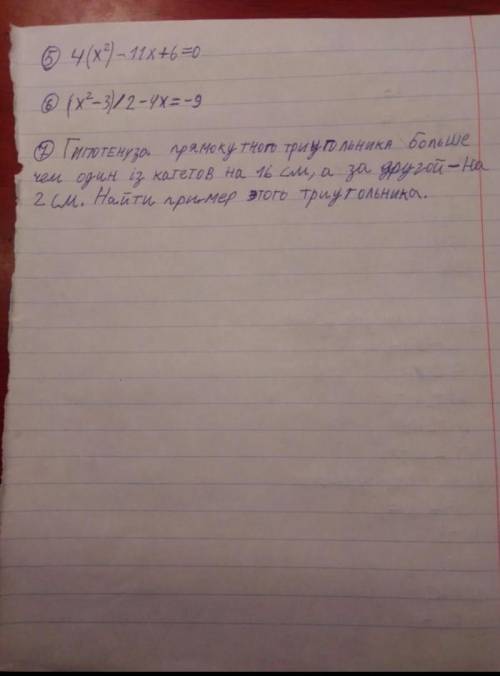 5 4(x²)-11x+6=0
6 (x²-3)/2-4x=-9
7 Гипотенуза прямокутного триугольника больше
чем один із катетов на 16 см, а за другой-на
2 см. Найти пример этого триугольника.